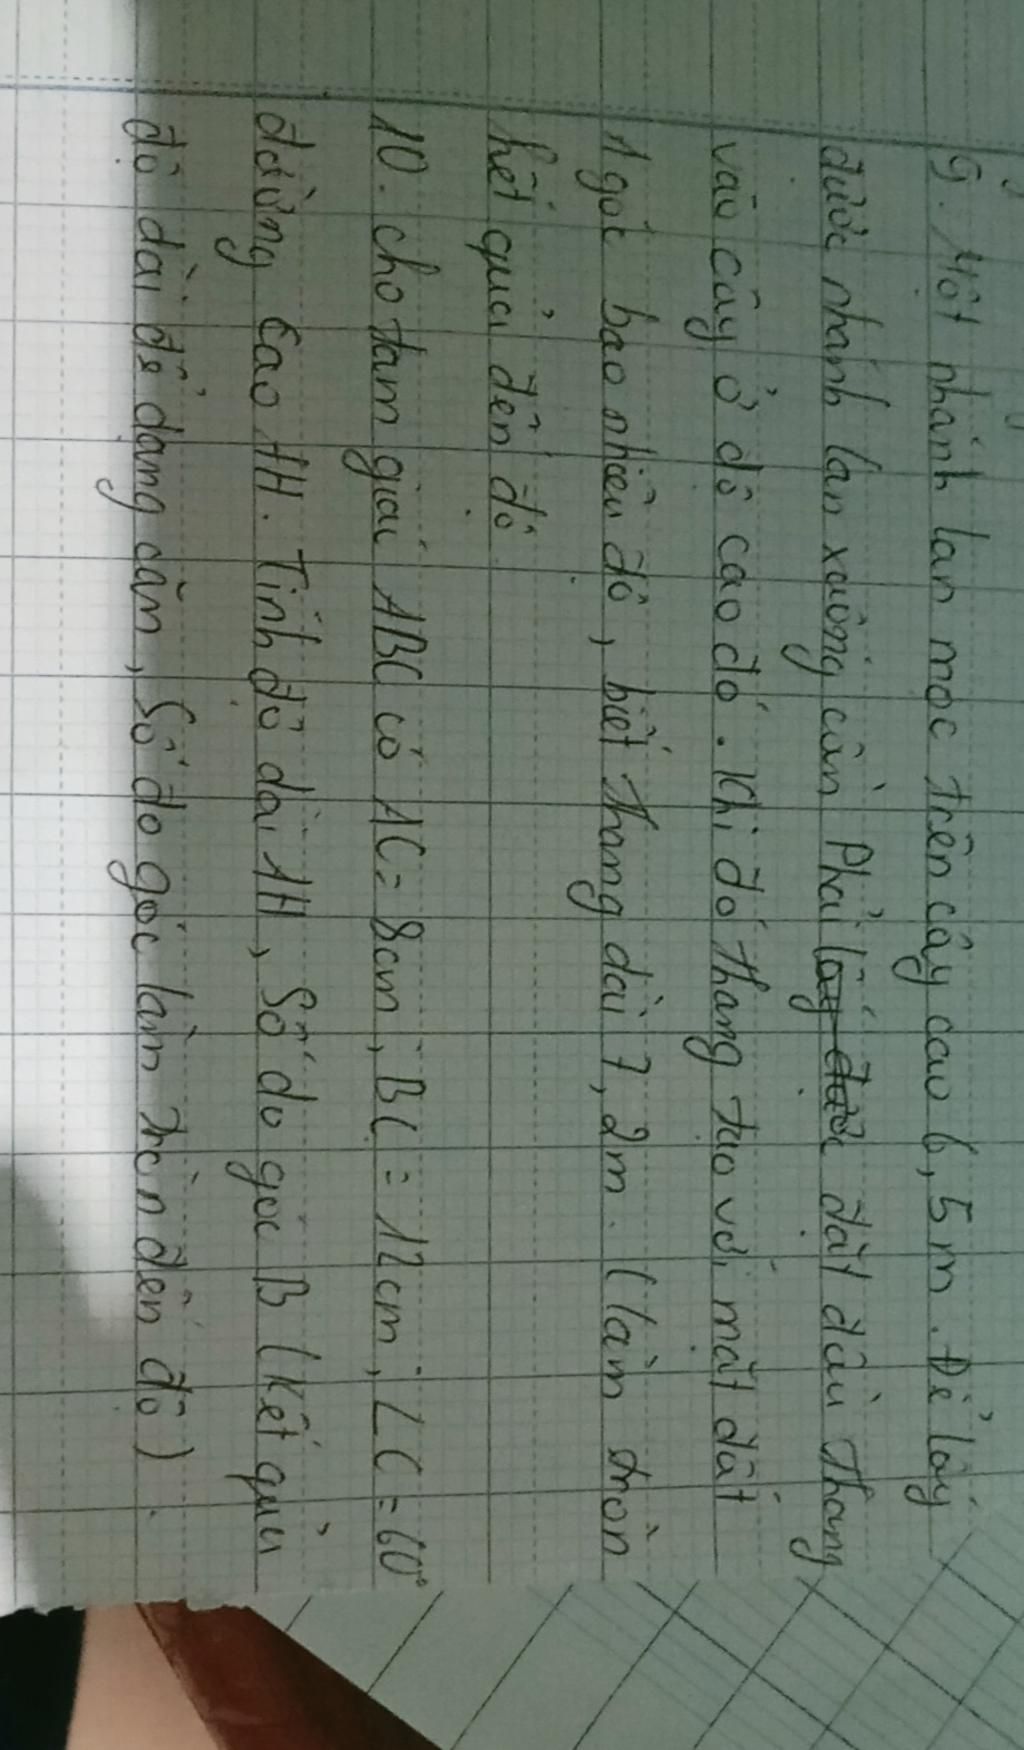 9. Một nhánh lan mọc trên cây cao 6,5m. Để lấy
được nhánh lan xuống cần Phải lấy được đặt đầu thang
vào cây ở độ cao đó. Khi đó thang tạo với mặt đất
1 góc bao nhiêu độ, biết thang dài 7,2m. (làm tròn
kết quả đến độ
10. cho tam giác ABC có AC = 8cm, BC = 12cm, ∠C = 60°
đường cao AH. Tính độ dài AH, Số đo góc B (kết quả
độ dài để dạng căn, Số đo góc làm tròn đến độ).